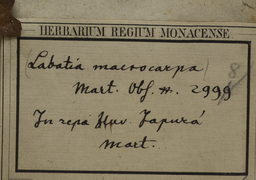 HERBARIUM REGIUM MONACENSE
(Labatia macrocarpa)
Mart. Obs. n. 2999
8
In ripa fluv. Japurá
Mart.